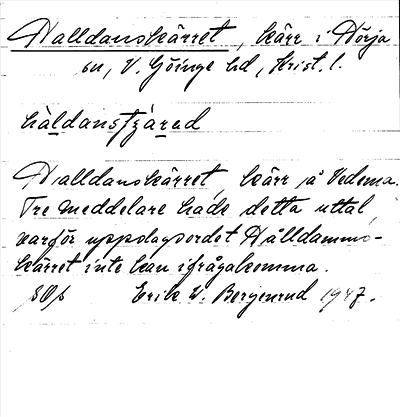 Halldanskärret, kärr i Hörja
sn, V. Göinge hd, Krist. l.
háldansʃárad
Halldanskärret, kärr å Vedema.
Tre meddelare hade detta uttal,
varför uppslagsordet Hålldamms-
kärret inte kan ifrågakomma.
Erik W. Bergenrud 1947.